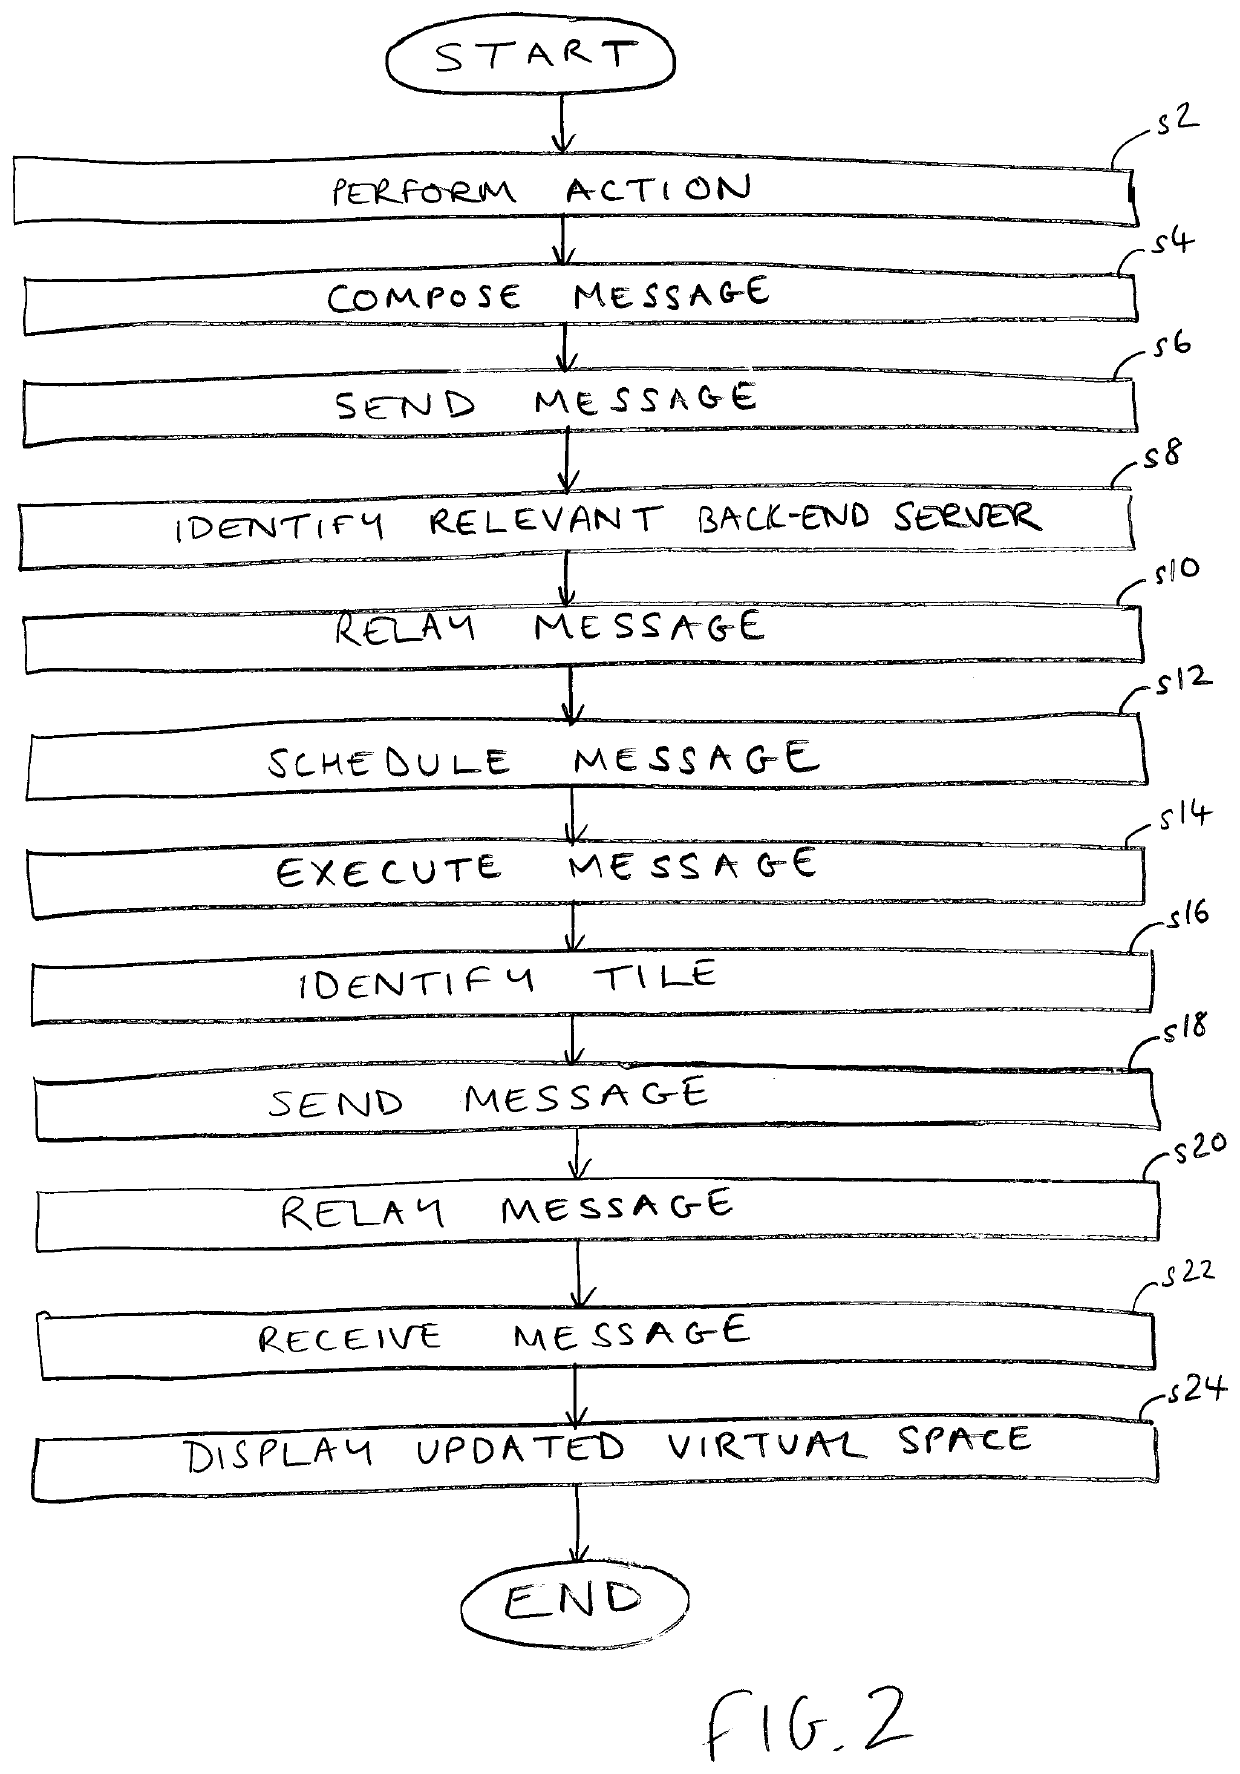 START
s2
PERFORM ACTION
s4
COMPOSE MESSAGE
s6
SEND MESSAGE
s8
IDENTIFY RELEVANT BACK-END SERVER
s10
RELAY MESSAGE
s12
SCHEDULE MESSAGE
s14
EXECUTE MESSAGE
s16
IDENTIFY TILE
s18
SEND MESSAGE
s20
RELAY MESSAGE
s22
RECEIVE MESSAGE
s24
DISPLAY UPDATED VIRTUAL SPACE
END
FIG. 2